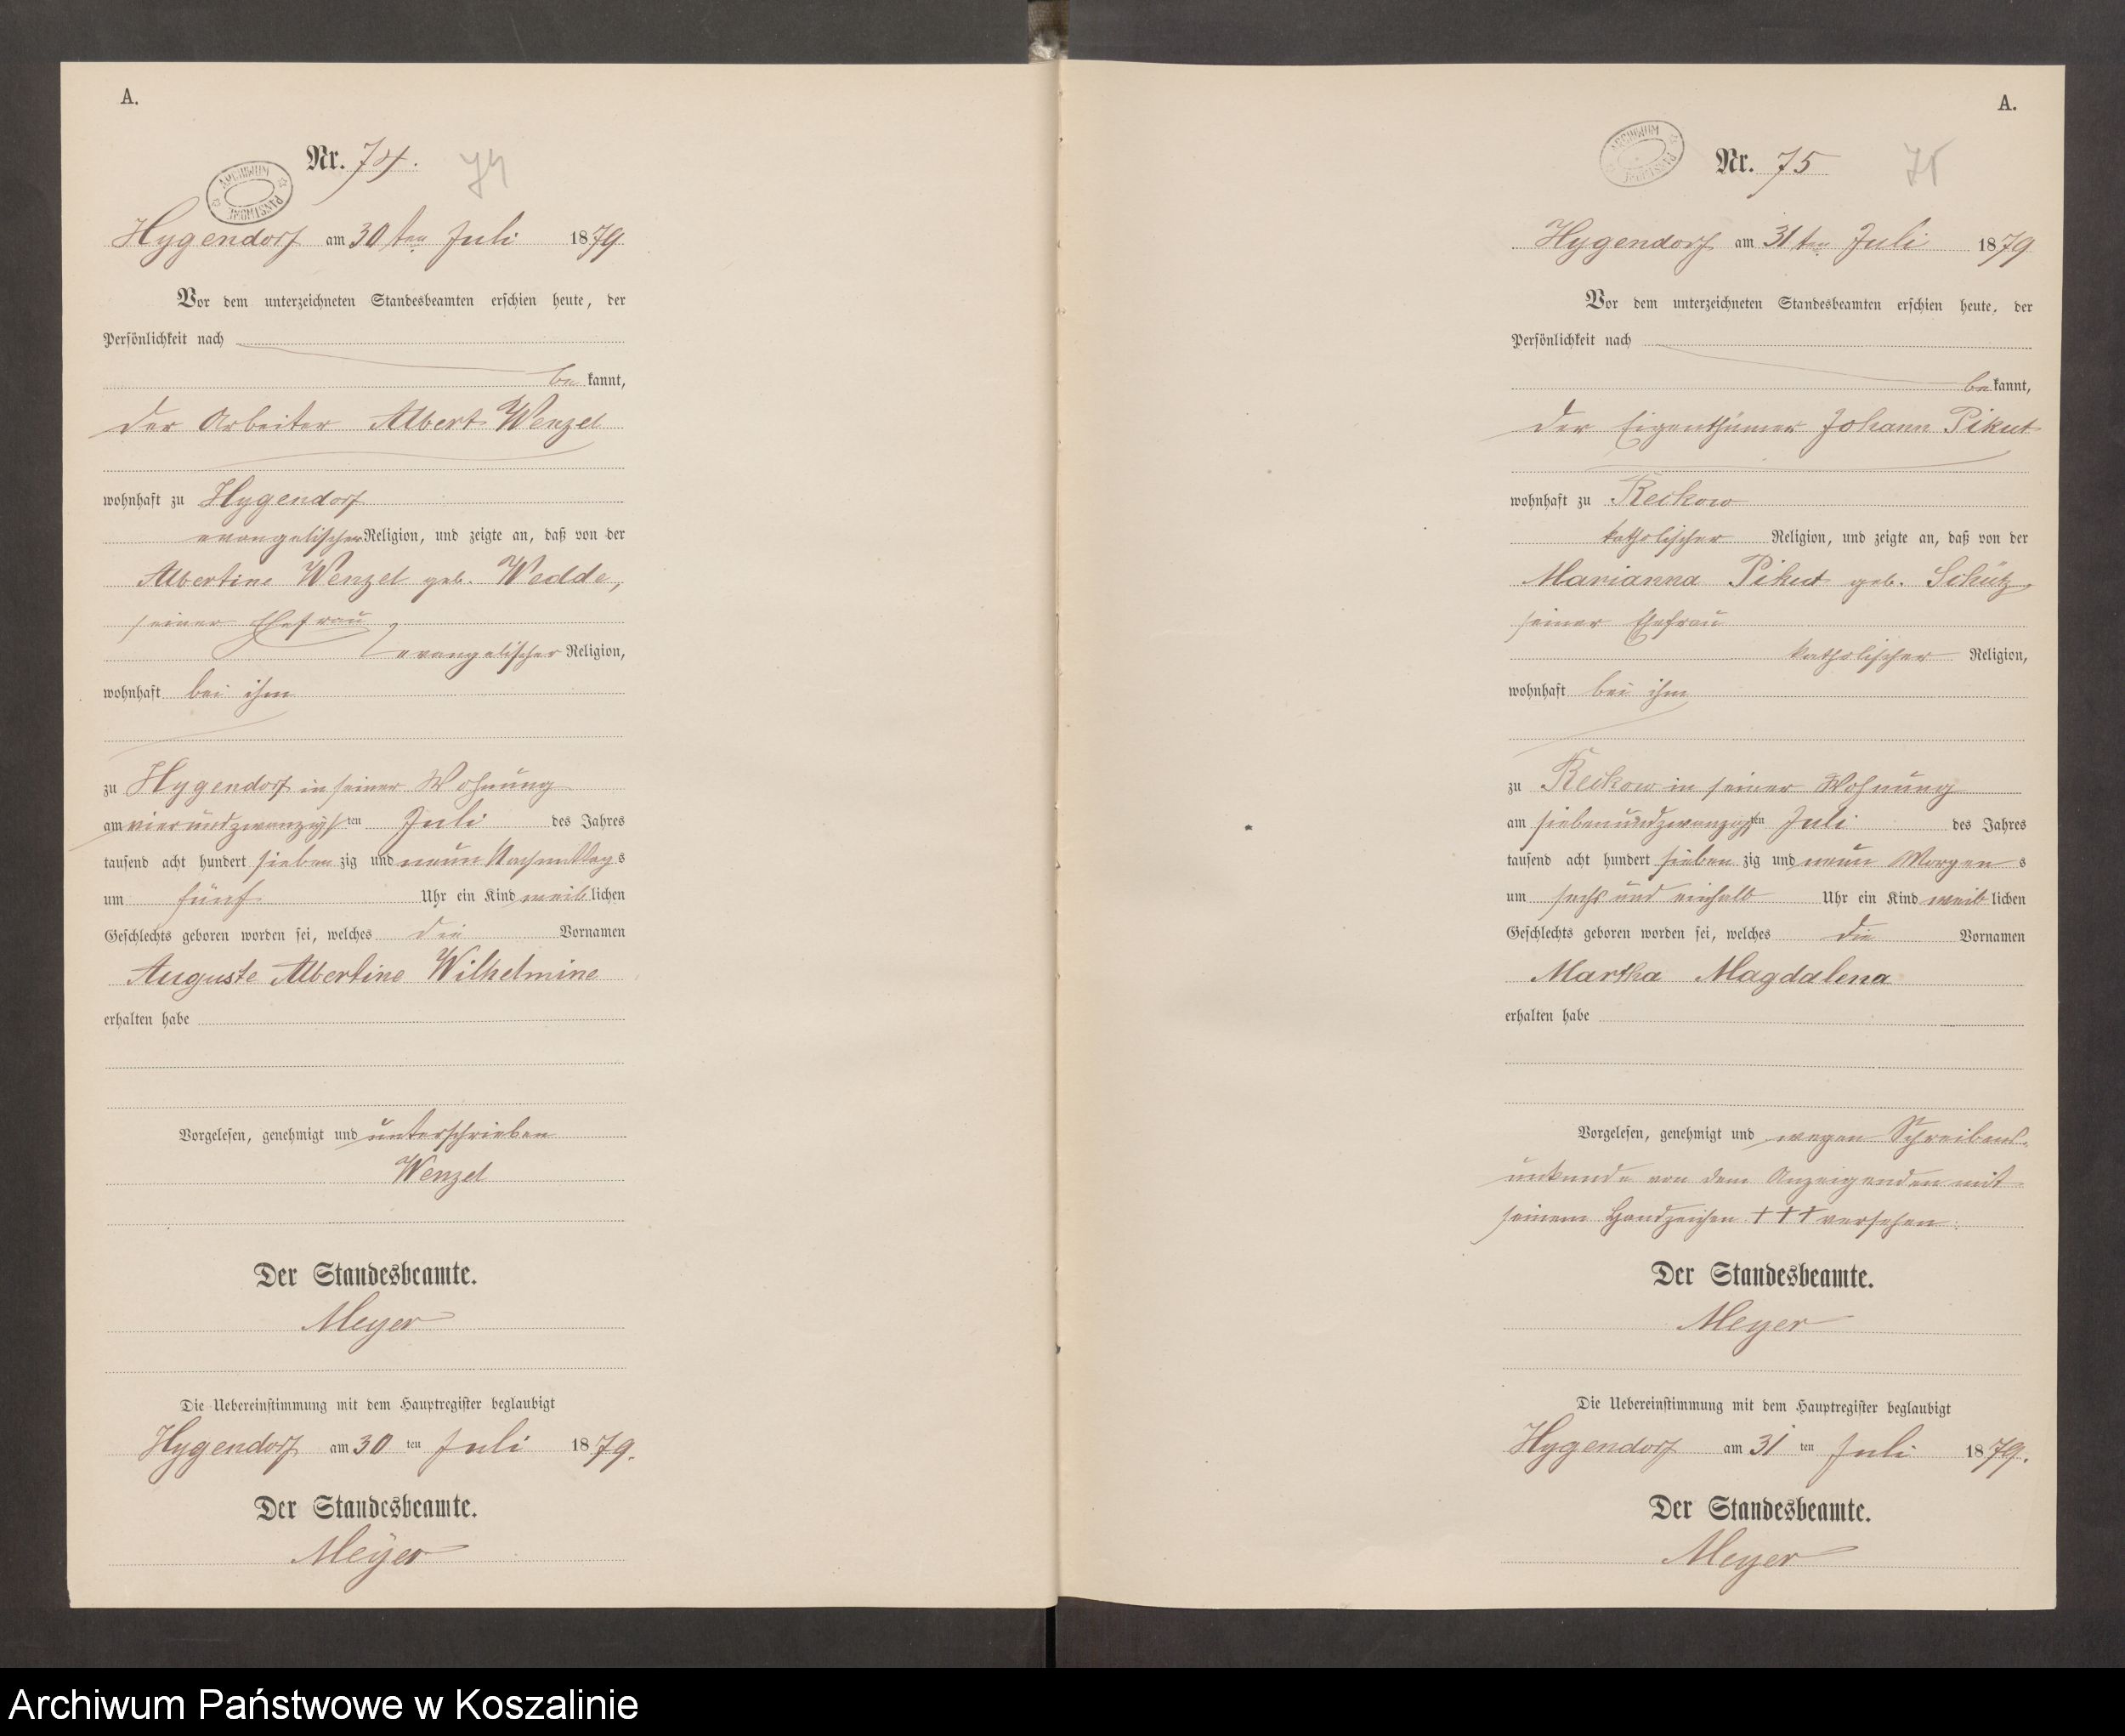 A.
Nr. 74.
74
ARCHIWUM PAŃSTWOWE
Hygendorf am 30ten Juli 1879.
Vor dem unterzeichneten Standesbeamten erschien heute, der
Persönlichkeit nach
bekannt,
der Arbeiter Albert Wenzel
wohnhaft zu Hygendorf
evangelischer Religion, und zeigte an, daß von der
Albertine Wenzel geb. Wedde,
seiner Ehefrau
evangelischer Religion,
wohnhaft bei ihm
zu Hygendorf in seiner Wohnung
am vierundzwanzigsten Juli des Jahres
tausend acht hundert siebenzig und neun Nachmittags
um fünf Uhr ein Kind weiblichen
Geschlechts geboren worden sei, welches die Vornamen
Auguste Albertine Wilhelmine
erhalten habe
Vorgelesen, genehmigt und unterschrieben
Wenzel
Der Standesbeamte.
Meyer
Die Uebereinstimmung mit dem Hauptregister beglaubigt
Hygendorf am 30ten Juli 1879.
Der Standesbeamte.
Meyer
A.
Nr. 75
75
ARCHIWUM PAŃSTWOWE
Hygendorf am 31ten Juli 1879
Vor dem unterzeichneten Standesbeamten erschien heute, der
Persönlichkeit nach
bekannt,
der Eigenthümer Johann Pikut
wohnhaft zu Reckow
katholischer Religion, und zeigte an, daß von der
Marianna Pikut geb. Schütz,
seiner Ehefrau
katholischer Religion,
wohnhaft bei ihm
zu Reckow in seiner Wohnung
am siebenundzwanzigsten Juli des Jahres
tausend acht hundert siebenzig und neun Morgens
um sechs und einhalb Uhr ein Kind weiblichen
Geschlechts geboren worden sei, welches die Vornamen
Martha Magdalena
erhalten habe
Vorgelesen, genehmigt und wegen Schreibens-
unkunde von dem Anzeigenden mit
seinem Handzeichen +++ versehen.
Der Standesbeamte.
Meyer
Die Uebereinstimmung mit dem Hauptregister beglaubigt
Hygendorf am 31ten Juli 1879.
Der Standesbeamte.
Meyer
Archiwum Państwowe w Koszalinie